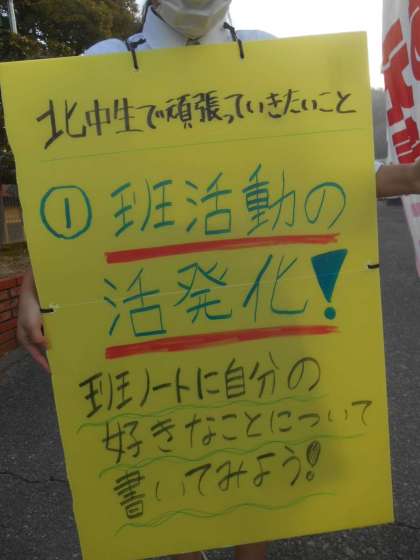 北中生で頑張っていきたいこと
① 班活動の
活発化!
班ノートに自分の
好きなことについて
書いてみよう!